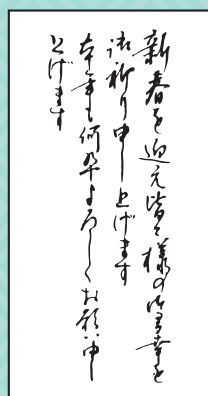 新春を迎え皆々様の御多幸を
御祈り申し上げます
本年も何卒よろしくお願い申
上げます